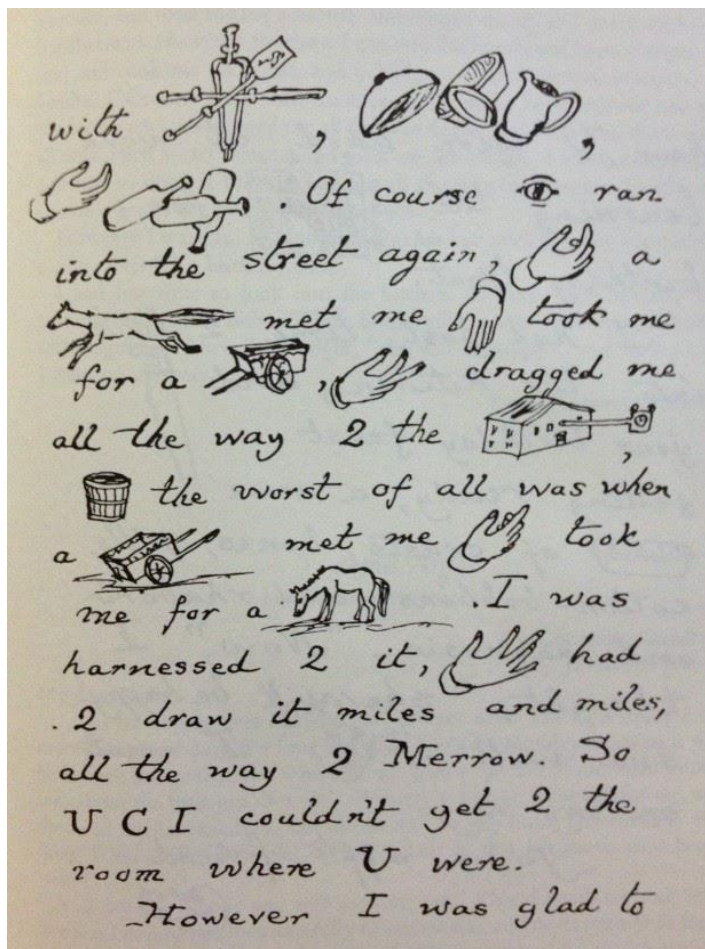 with , ,
. Of course ran
into the street again, a
met me took me
for a , dragged me
all the way 2 the ,
the worst of all was when
a met me took
me for a . I was
harnessed 2 it, had
.2 draw it miles and miles,
all the way 2 Merrow. So
U C I couldn't get 2 the
room where U were.
However I was glad to